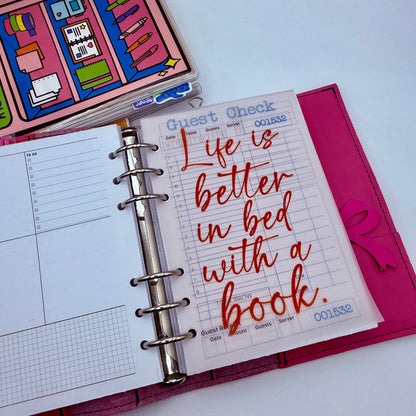 TO DO
Guest Check
Date
Guests
Server
001532
Life is
better
in bed
with a
book.
Guest R
Date
Amount
Guests
Server
001532